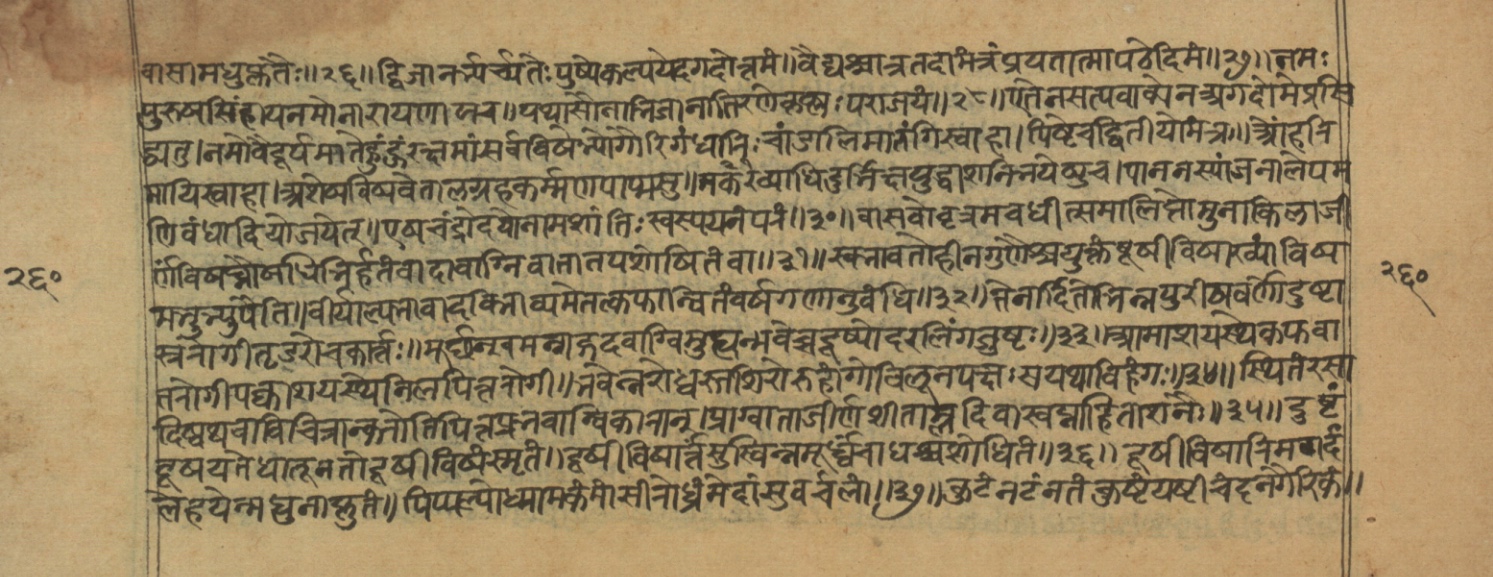 वासामधुप्लुतैः॥२६॥द्विजानभ्यर्च्यतैःपुष्येकल्पयेदगदोत्तमं॥वैद्यश्चात्रतदामंत्रंप्रयतात्मापठेदिमं॥२७॥नमः
पुरुषसिंहायनमोनारायणायच॥यथासौनाभिजानातिरणेकृष्णःपराजयं॥२८॥एतेनसत्यवाक्येनअगदोमेप्रसि
द्ध्यतु।नमोवैडूर्यमातेहुंहुंरक्षमांसर्वविषेभ्योगौरिगंधारिचांडालिमातंगिस्वाहा।पिष्टेचद्वितीयोमंत्रः॥ओंहरि
मायिस्वाहा।अशेषविषवेतालग्रहकर्म्मणपाप्मसु॥मरकव्याधिदुर्भिक्षयुद्धाशनिभयेषुच।पाननस्यांजनालेपम
णिबंधादियोजयेत्॥एषचंद्रोदयोनामशांतिःस्वस्त्ययनंपरं॥३०॥वासवोवृत्रमवधीत्समालिप्तोमुनाकिलाजी
र्णविषघ्नौषधिभिर्हतंवादावाग्निवातातपशोषितंवा॥३१॥स्वभावतोहीनगुणैश्चयुक्तंदूषीविषाख्यांविष
मभ्युपैति॥वीर्याल्पभावादविभाव्यमेतत्कफान्वितंवर्षगणानुबंधि॥३२॥तेनार्दितोभिन्नपुरीषवर्णोदुष्टा
स्ररोगीतृडरोचकार्त्तः॥मूर्छन्वमन्गद्गदवाग्विमुह्यन्भवेच्चदूष्योदरलिंगजुष्टः॥३३।आमाशयस्थेकफवा
तरोगीपक्वाशयस्थेनिलपित्तरोगी॥भवेन्नरोध्वस्तशिरोरुहांगोविलूनपक्षःसयथाविहंगः॥३४॥स्थितंरसा
दिष्वथवाविचित्रान्करोतिपित्तप्रभवान्विकारान्।प्राग्वाताजीर्णशीताभ्रदिवास्वप्नाहिताशनैः॥३५॥दुष्टं
दूषयतेधातूनतोदूषीविषंस्मृतं॥दूषीविषार्त्तंसुस्विन्नमूर्द्ध्वंचाधश्चशोधितं॥३६॥दूषीविषारिमगदं
लेहयेन्मधुनाप्लुतं॥पिप्पल्योध्मामकंमांसीरोध्रंमेलांसुवर्चलां॥३७॥कुटंनटंनतंकुष्टंयष्टीचंदनगैरिकं॥
२६०
२६०